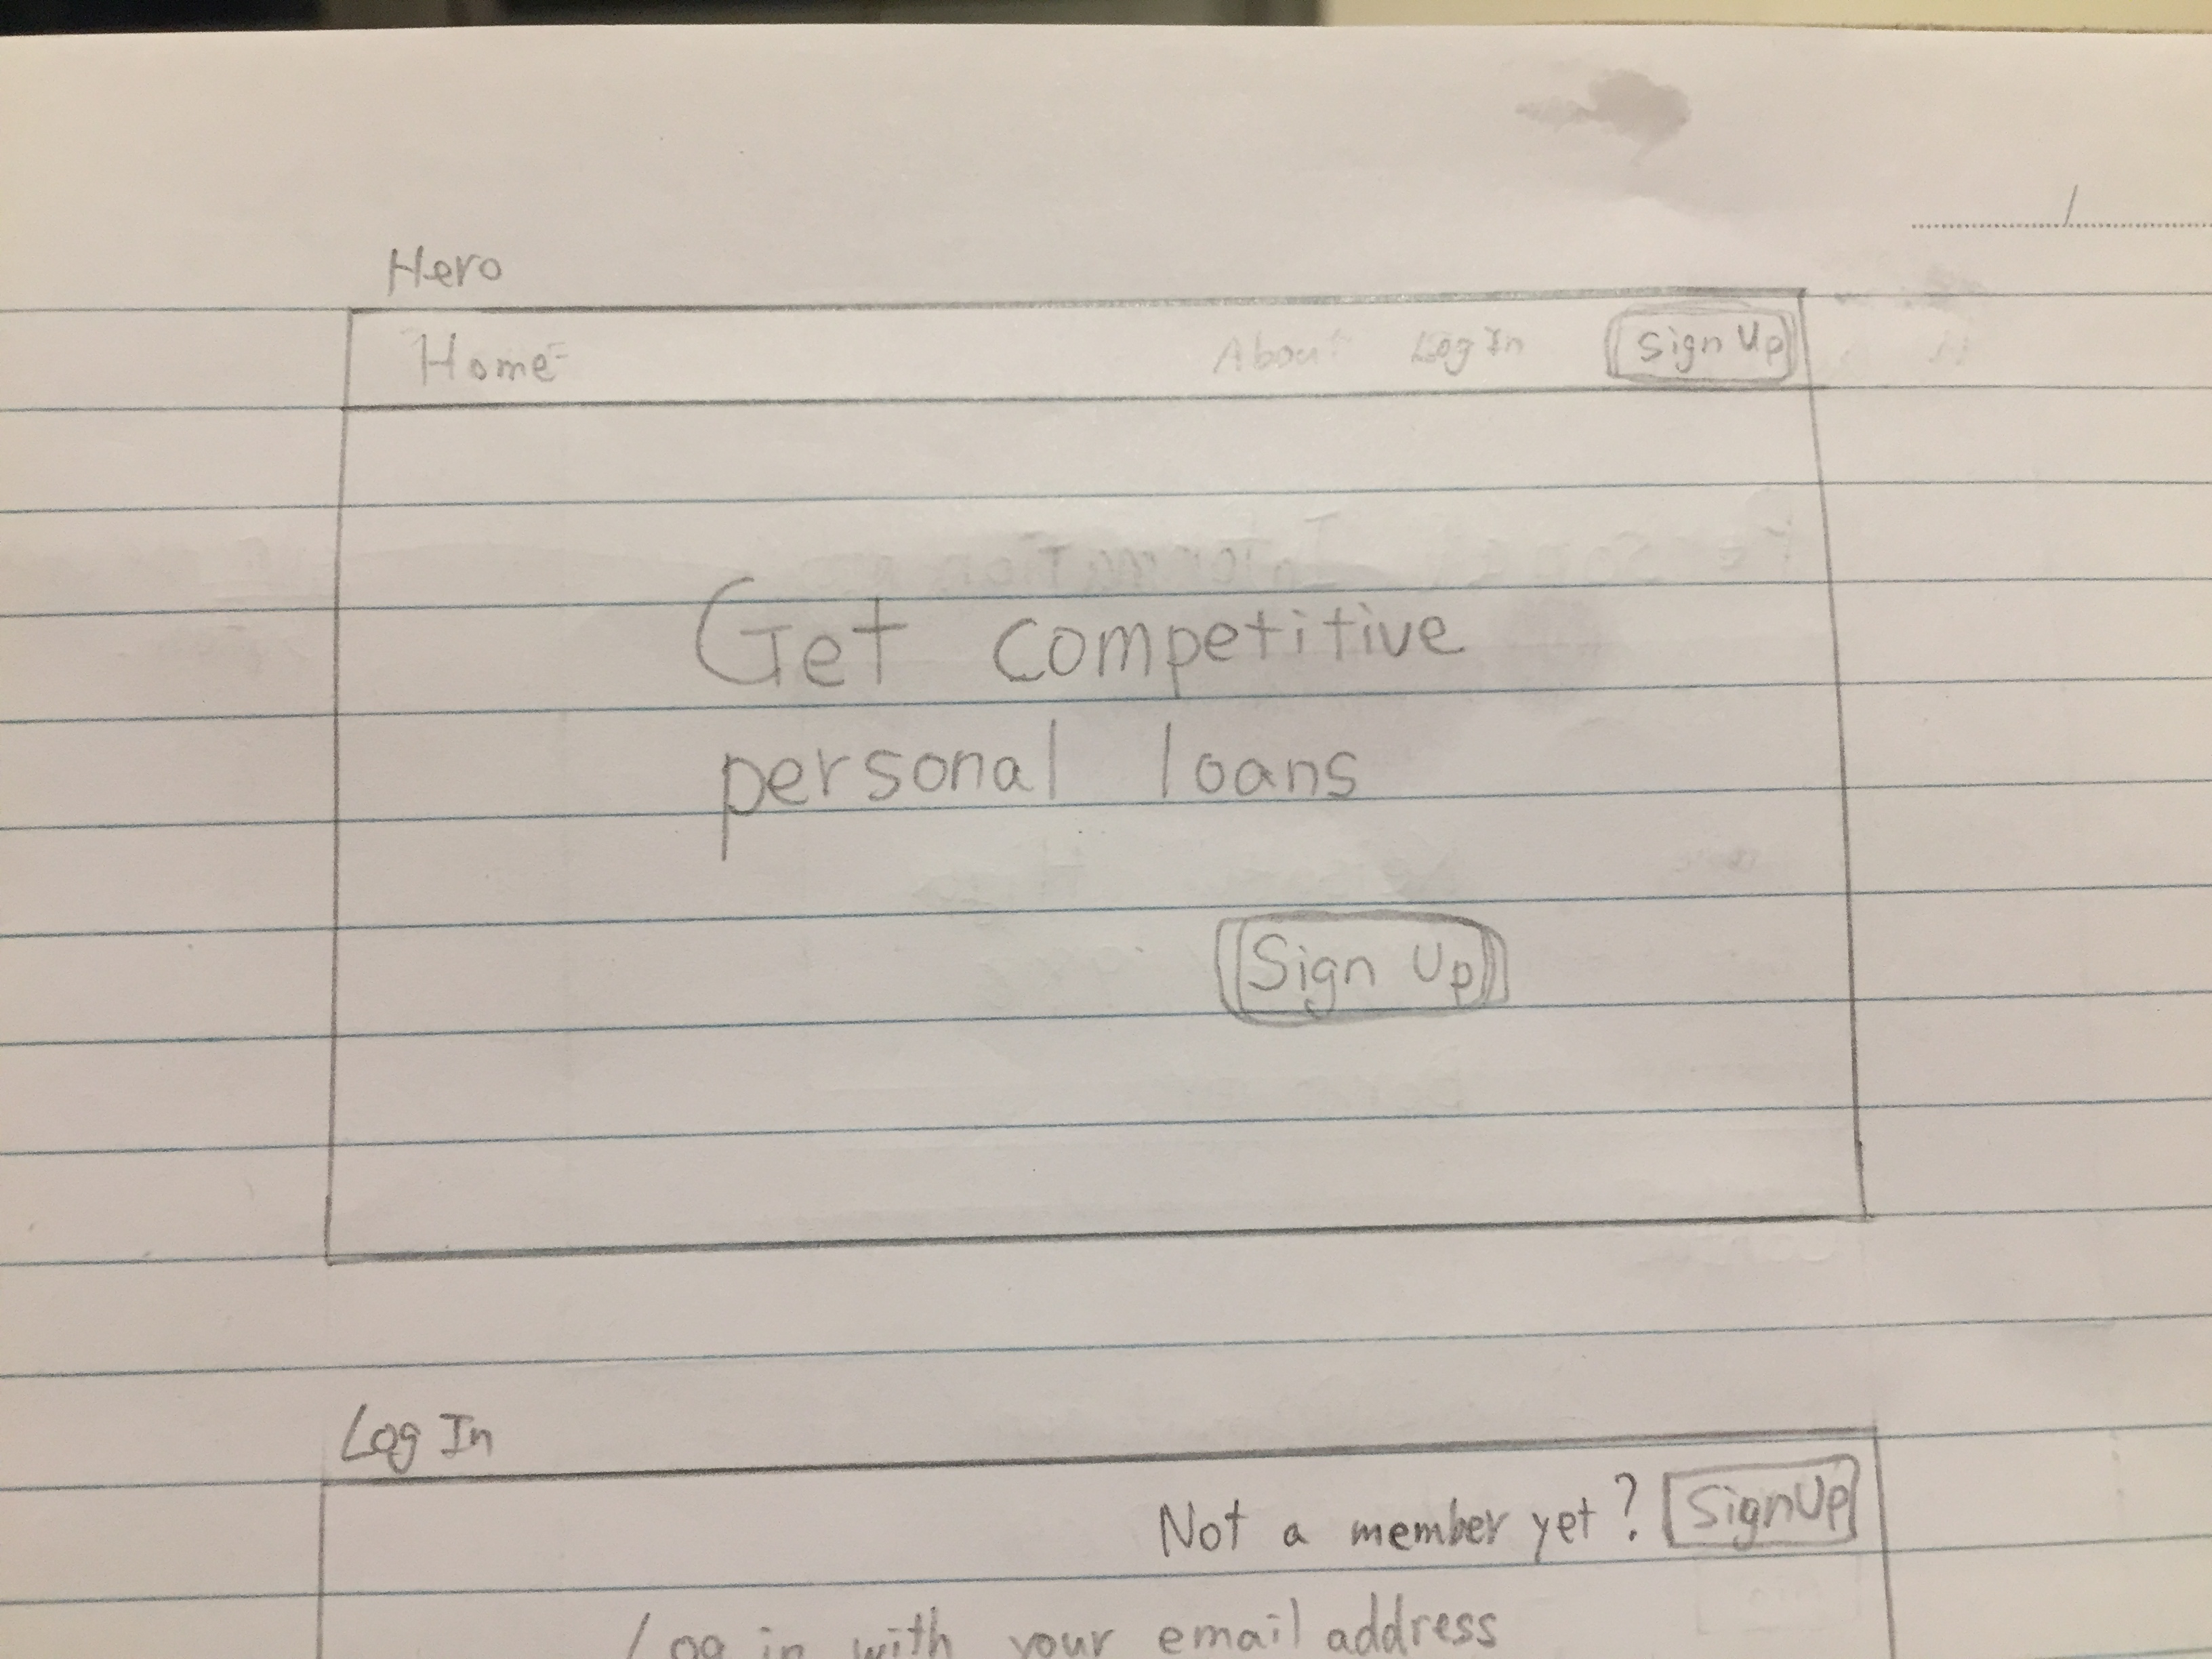 Hero
Home About Log In Sign Up
Get competitive
personal loans
Sign Up
Log In
Not a member yet? Sign Up
Log in with your email address